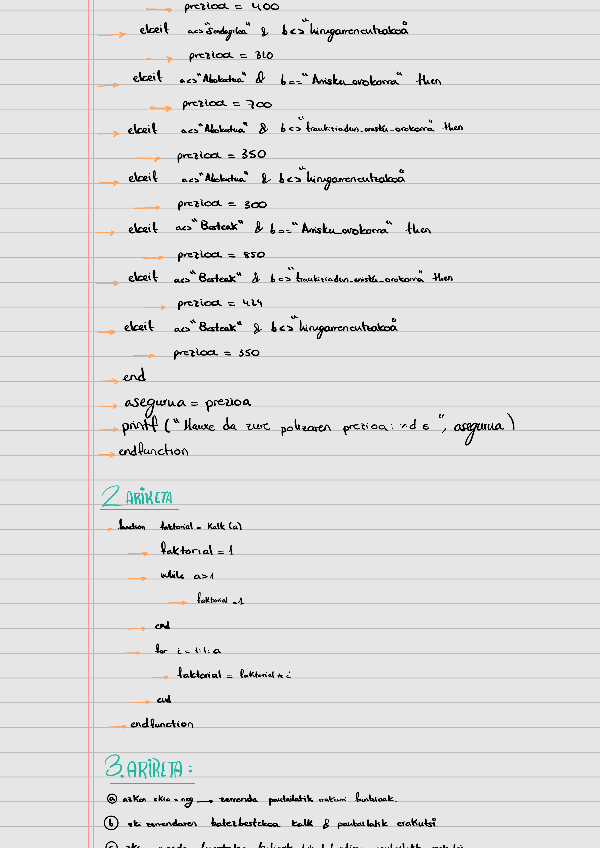 → prezioa = 400
→ elseif a<>"Sendagilea" & b<>"hirugarrenentzakoa"
→ prezioa = 310
→ elseif a<>"Abokatua" & b=="Arisku_orokorra" then
→ prezioa = 700
→ elseif a<>"Abokatua" & b<>"frankiziadun_arisku_orokorra" then
→ prezioa = 350
→ elseif a<>"Abokatua" & b<>"hirugarrenentzakoa"
→ prezioa = 300
→ elseif a<>"Besteak" & b=="Arrisku_orokorra" then
→ prezioa = 850
→ elseif a<>"Besteak" & b<>"frankiziadun_arisku_orokorra" then
→ prezioa = 424
→ elseif a<>"Besteak" & b<>"hirugarrenentzakoa"
→ prezioa = 350
→ end
→ asegurua = prezioa
→ printf ("Hauxe da zure polizaren prezioa: %d €", asegurua)
→ endfunction
2 ARIKETA
→ function faktorial = kalk (a)
→ faktorial = 1
→ while a>1
→ faktorial =1
→ end
→ for i = 1:1:a
→ faktorial = faktorial * i
→ end
→ endfunction
3. ARIKETA:
ⓐ azken → zerrenda pantailatik funtzioak.
ⓑ zerrendaren batezbestekoa kalk & pantailatik erakutsi